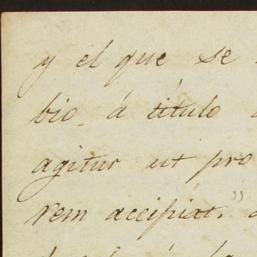 y el que se
bio á título
agitur ut pro
rem accipiat."